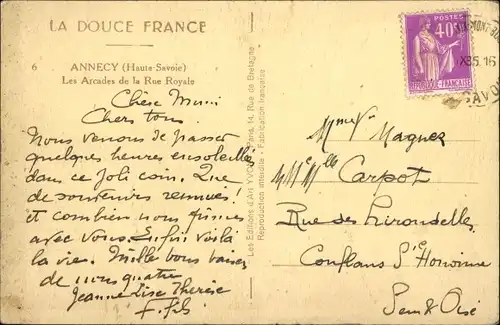 LA DOUCE FRANCE
6 ANNECY (Haute-Savoie)
Les Arcades de la Rue Royale
Chère Mimi
Chers tous
Nous venons de passer
quelques heures ensoleillées
dans ce joli coin. Que
de souvenirs remués!
et combien nous fûmes
avec vous. Enfin voilà
la vie. Mille bons baisers
de nous quatre
Jeanne Lise Thérèse
Les Editions d'Art YVON, Paris, 14, Rue de Bretagne
Reproduction interdite - Fabrication française
POSTES
40c
REPUBLIQUE FRANÇAISE
35.16
SAVO
Mme Vve Magnez
Mlle Carpot
Rue des Hirondelles
Conflans Ste Honorine
Seine & Oise